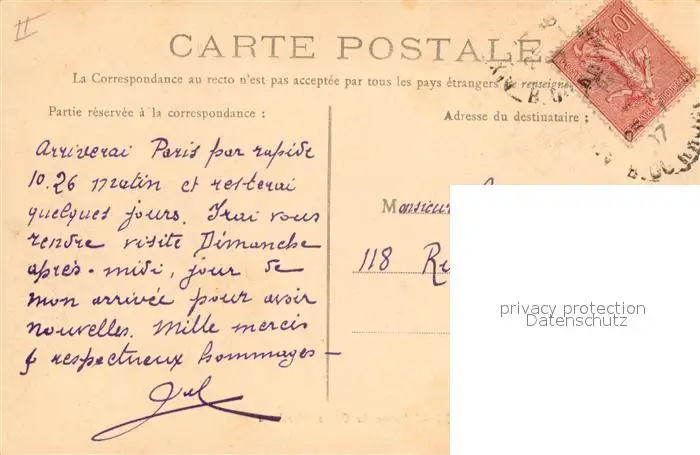 II
CARTE POSTALE
La Correspondance au recto n'est pas acceptée par tous les pays étrangers se renseigne
Partie réservée à la correspondance :
Adresse du destinataire :
Arriverai Paris par rapide
10.26 matin et resterai
quelques jours. Irai vous
rendre visite Dimanche
après-midi, jour de
mon arrivée pour avoir
nouvelles. Mille mercis
& respectueux hommages —
Monsieur
118 Ru
privacy protection
Datenschutz
10